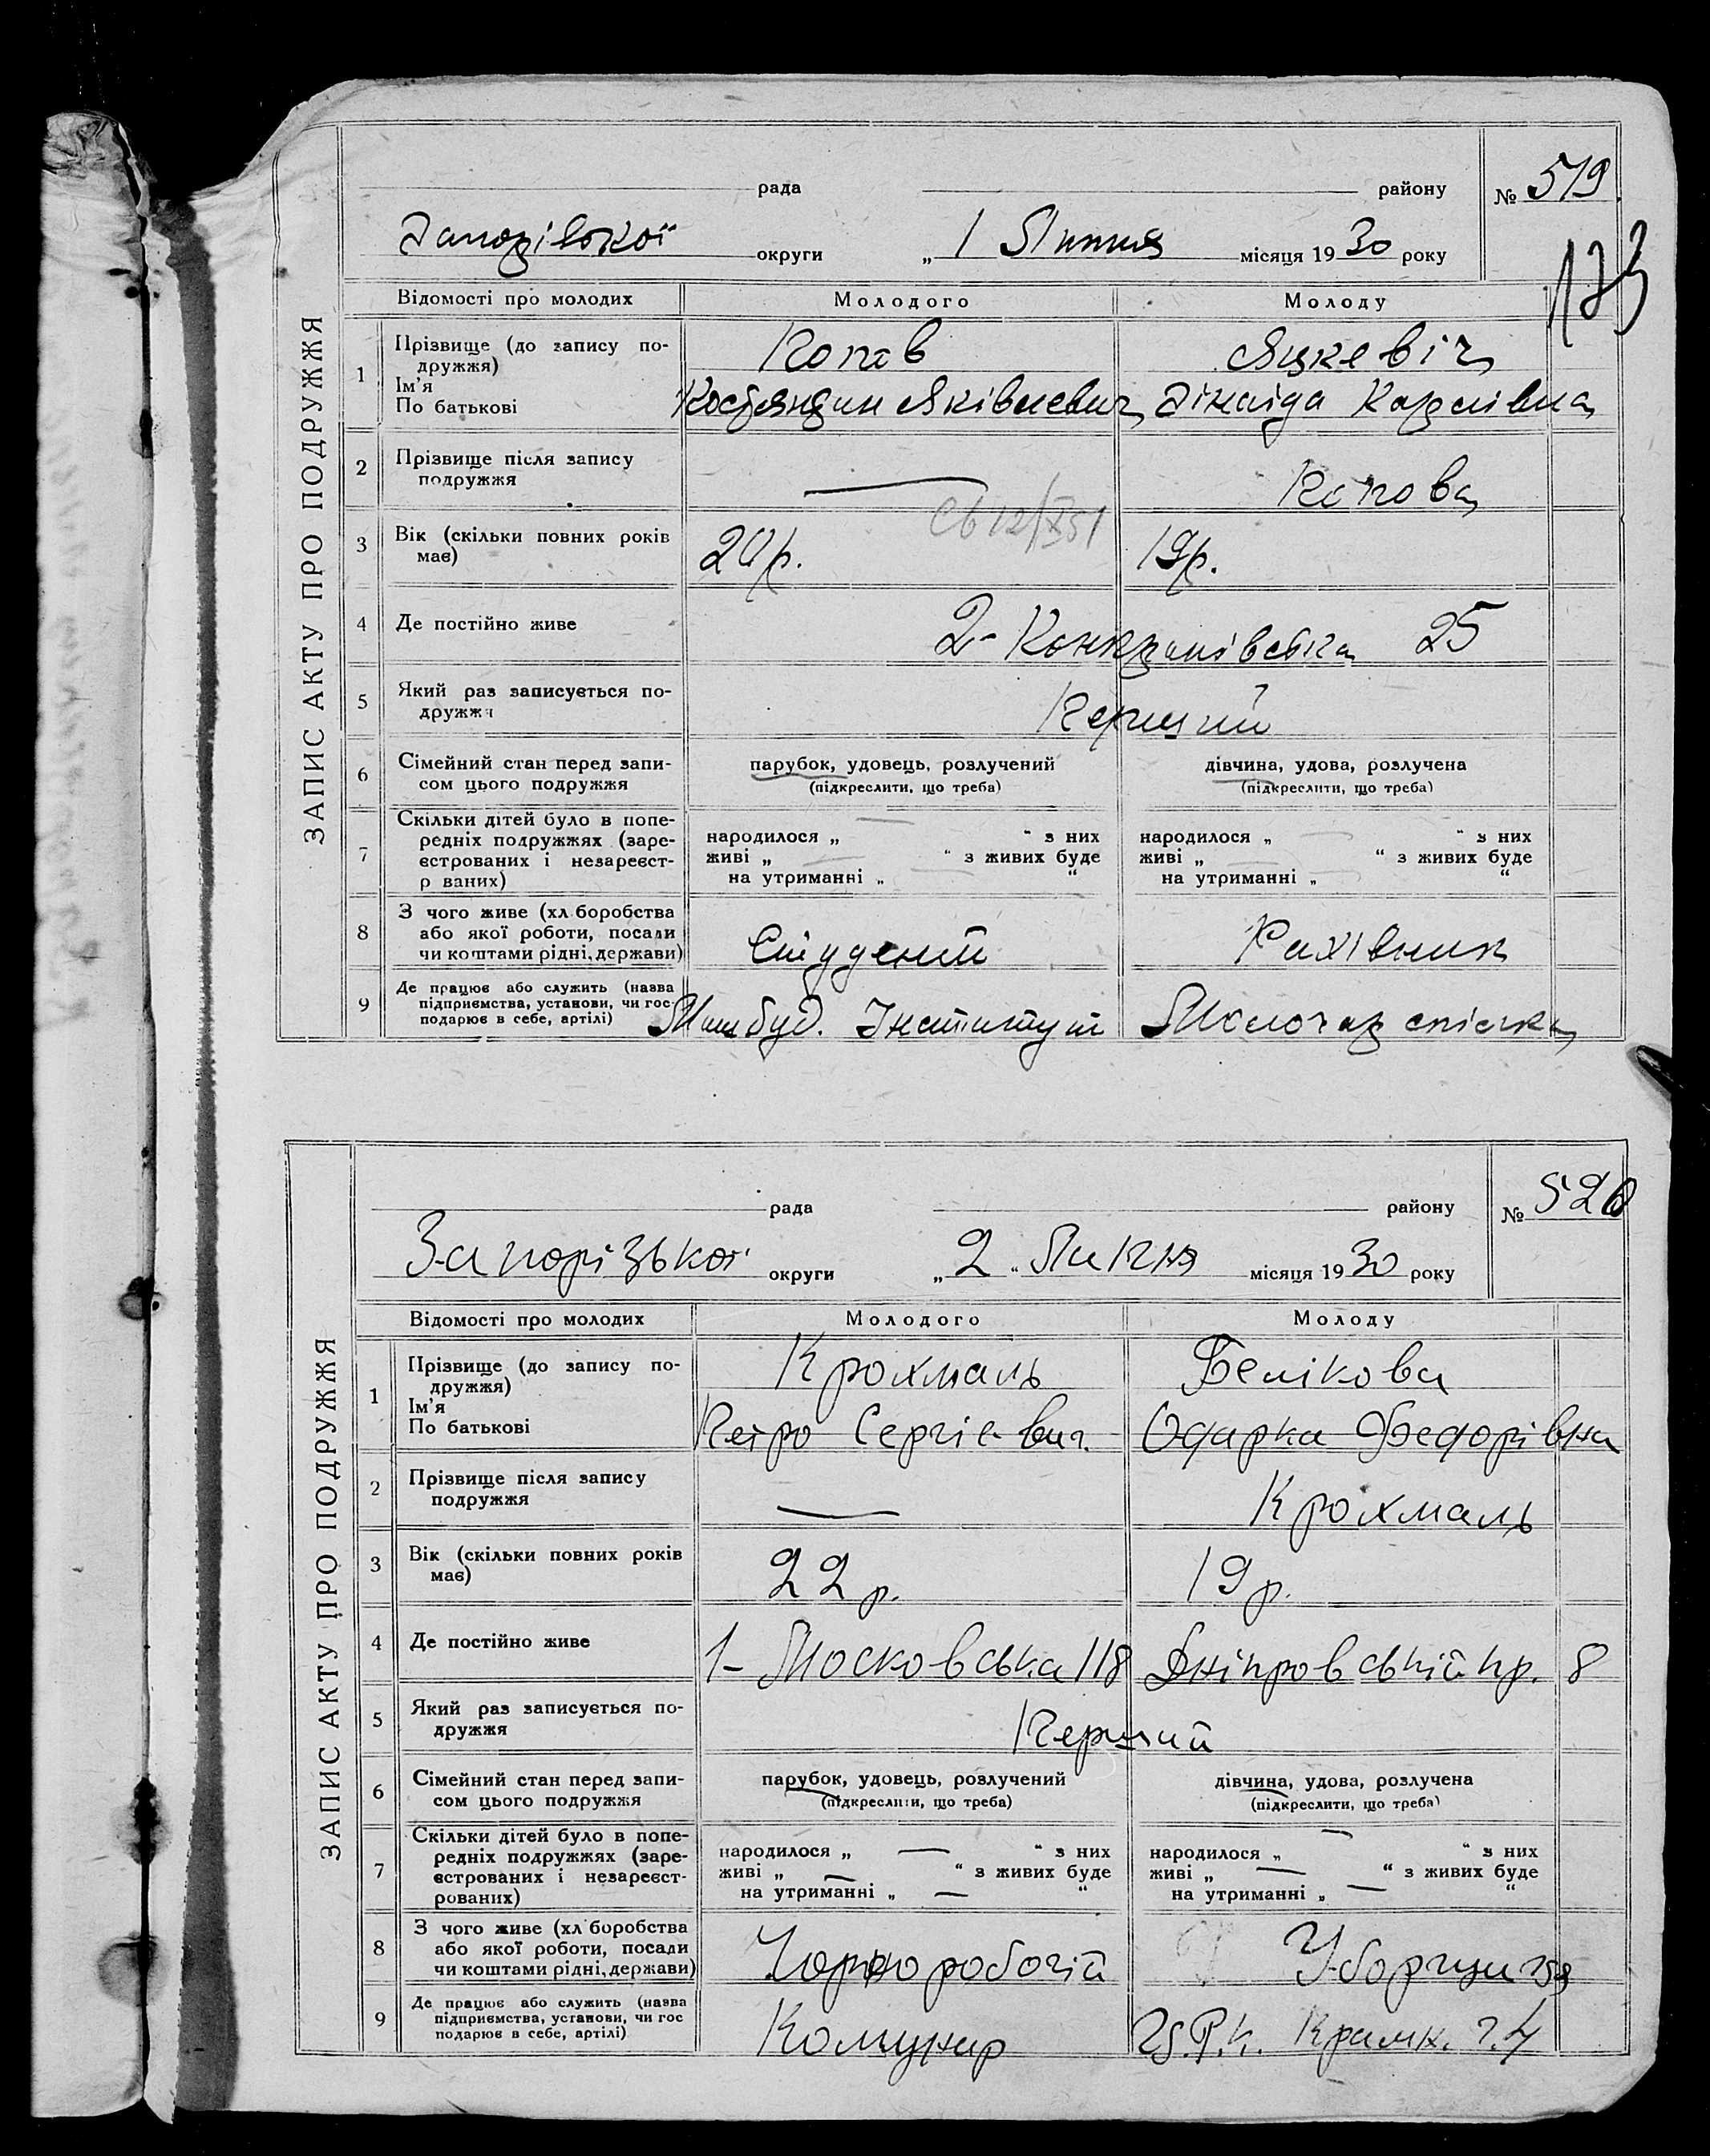 ЗАПИС АКТУ ПРО ПОДРУЖЖЯ
рада району № 519
Запорізької округи „ 1 Липня місяця 1930 року
173
Відомості про молодих Молодого Молоду
1 Прізвище (до запису подружжя) Попов Яцкевіч
Ім'я
По батькові Костянтин Яківлевич Зінаїда Карлівна
2 Прізвище після запису подружжя — Попова
3 Вік (скільки повних років має) 20 р. 19 р.
4 Де постійно живе 2- 25
5 Який раз записується подружжя Перший
6 Сімейний стан перед записом цього подружжя парубок, удовець, розлучений дівчина, удова, розлучена
(підкреслити, що треба) (підкреслити, що треба)
7 Скільки дітей було в попередніх подружжях (зареєстрованих і незареєстр ваних)
народилося „ — “ з них народилося „ — “ з них
живі „ — “ з живих буде живі „ — “ з живих буде
на утриманні „ — “ на утриманні „ — “
8 З чого живе (хл боробства або якої роботи, посади чи коштами рідні, держави) Студент Рахівник
9 Де працює або служить (назва підприємства, установи, чи гос подарює в себе, артілі) Машбуд. Інститут Молочар спілка
ЗАПИС АКТУ ПРО ПОДРУЖЖЯ
рада району № 520
Запорізької округи „ 2 „ Липня місяця 1930 року
Відомості про молодих Молодого Молоду
1 Прізвище (до запису подружжя) Крохмаль Белікова
Ім'я
По батькові Петро Сергієвич Одарка Федорівна
2 Прізвище після запису подружжя — Крохмаль
3 Вік (скільки повних років має) 22 р. 19 р.
4 Де постійно живе 1- Московська 118 Дніпровський пр. 8
5 Який раз записується подружжя Перший
6 Сімейний стан перед записом цього подружжя парубок, удовець, розлучений дівчина, удова, розлучена
(підкреслити, що треба) (підкреслити, що треба)
7 Скільки дітей було в попередніх подружжях (зареєстрованих і незареєстрованих)
народилося „ — “ з них народилося „ — “ з них
живі „ — “ з живих буде живі „ — “ з живих буде
на утриманні „ — “ на утриманні „ — “
8 З чого живе (хл боробства або якої роботи, посади чи коштами рідні, держави) Чорноробочій Уборщиця
9 Де працює або служить (назва підприємства, установи, чи гос подарює в себе, артілі) Комунар Ц.Р.К.